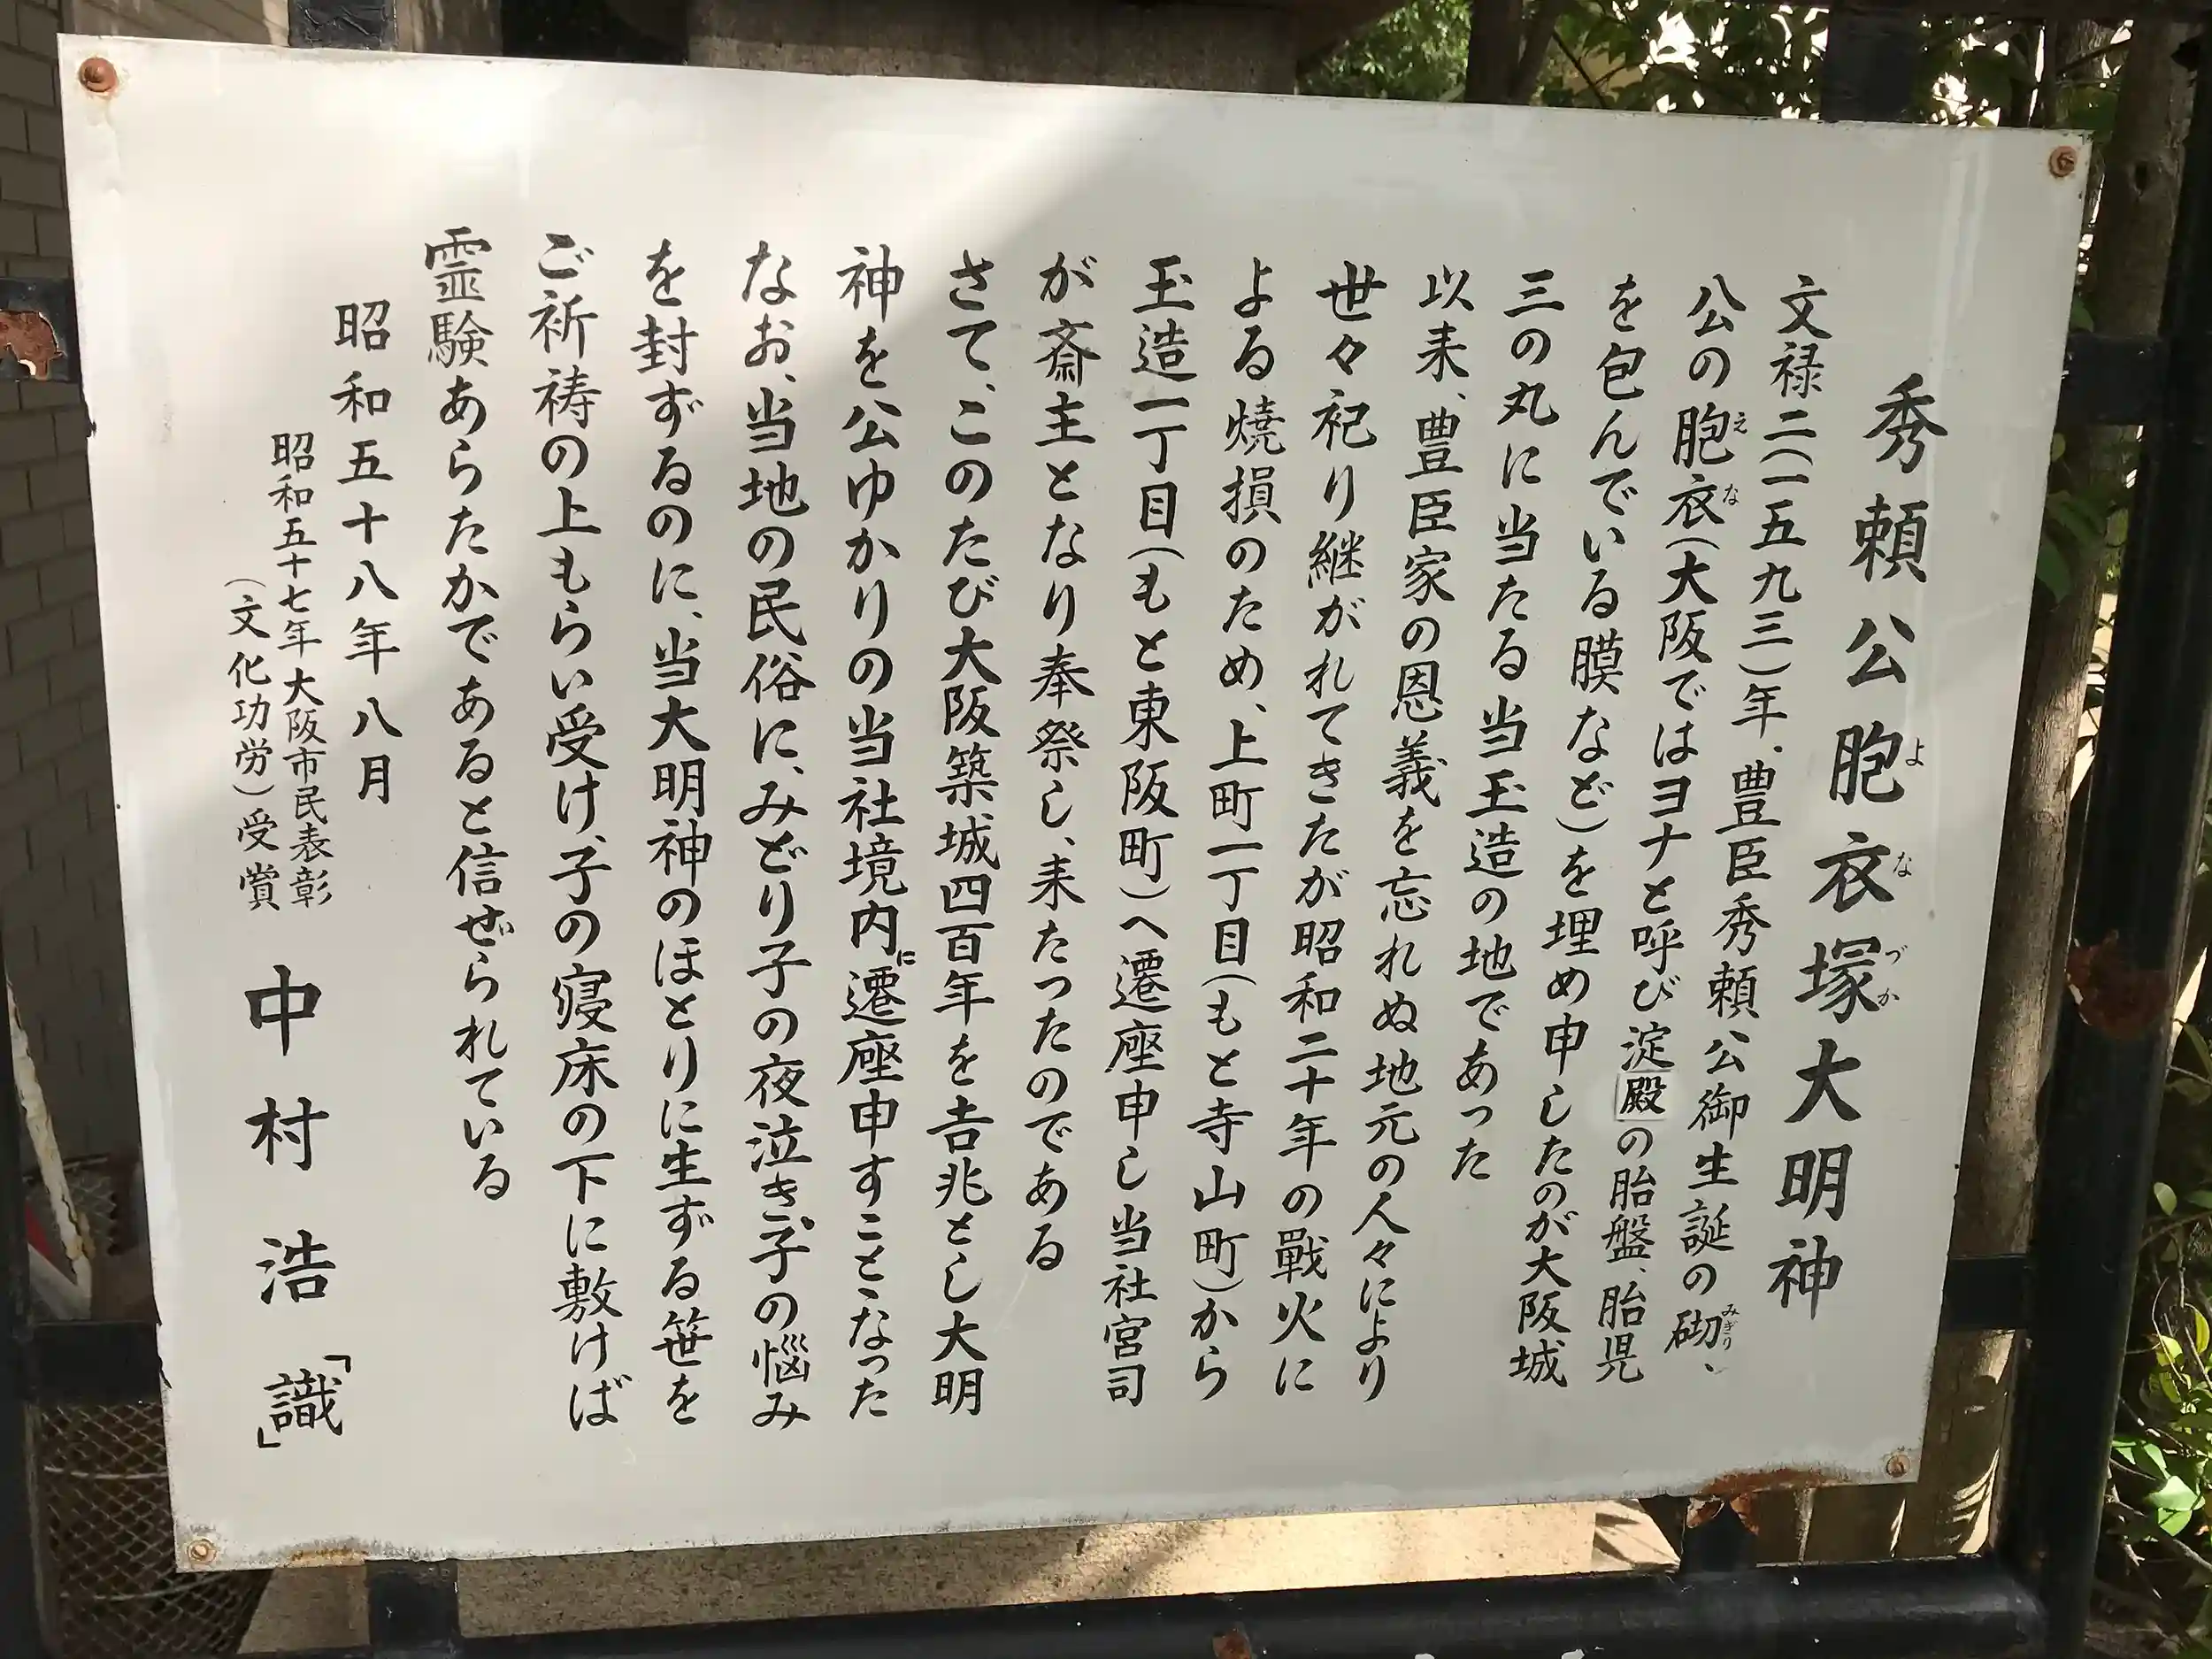 秀頼公胞衣塚大明神
文禄二(一五九三)年、豊臣秀頼公御生誕の砌、
公の胞衣(大阪ではヨナと呼び淀殿の胎盤、胎児
を包んでいる膜など)を埋め申したのが大阪城
三の丸に当たる当玉造の地であった
以来、豊臣家の恩義を忘れぬ地元の人々により
世々祀り継がれてきたが昭和二十年の戰火に
よる焼損のため、上町一丁目(もと寺山町)から
玉造一丁目(もと東阪町)へ遷座申し当社宮司
が斎主となり奉祭し、来たったのである
さて、このたび大阪築城四百年を吉兆とし大明
神を公ゆかりの当社境内に遷座申すことゝなった
なお、当地の民俗に、みどり子の夜泣き、子の悩み
を封ずるのに、当大明神のほとりに生ずる笹を
ご祈祷の上もらい受け、子の寝床の下に敷けば
霊験あらたかであると信ぜられている
昭和五十八年八月
昭和五十七年大阪市民表彰
(文化功労)受賞
中村浩「識」